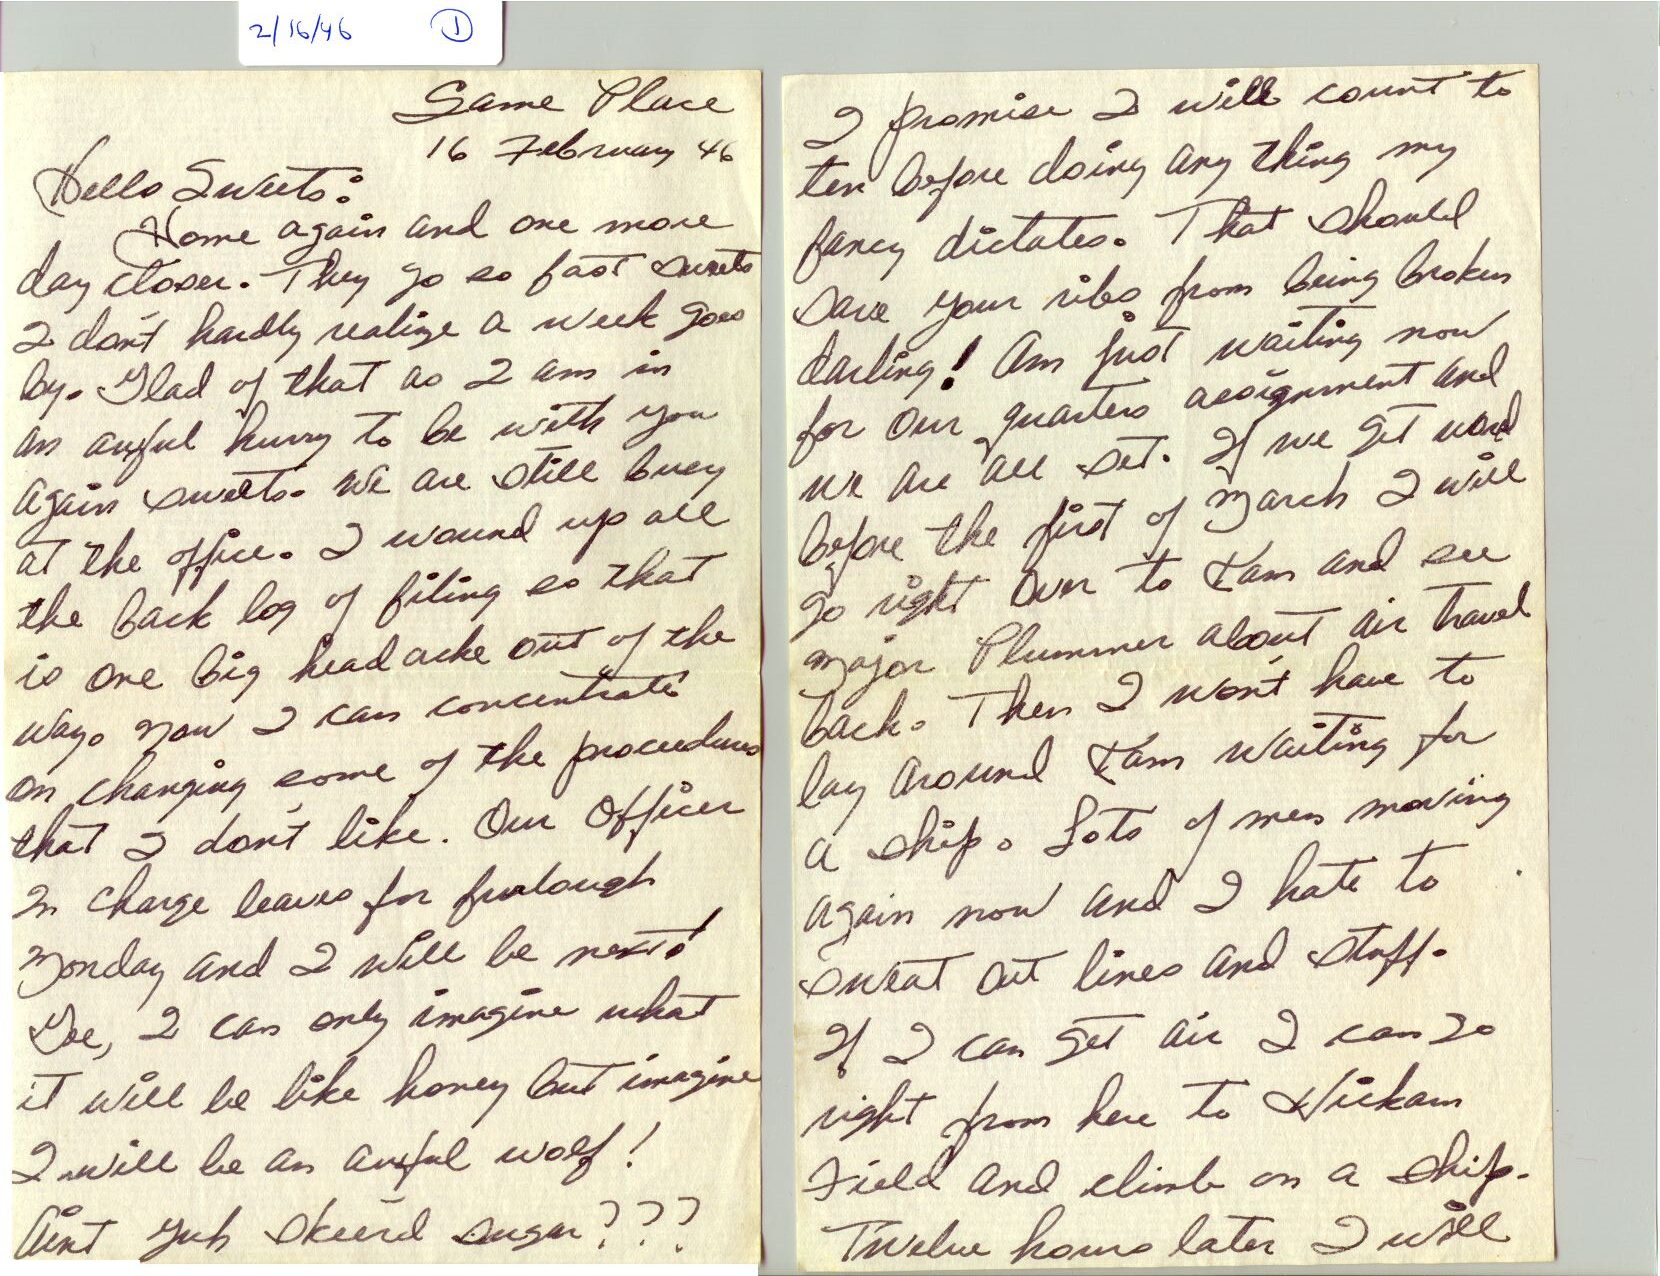 2/16/46 1
Same Place
16 February 46
Hello Sweets:
Home again and one more
day closer. They go so fast sweets
I don't hardly realize a week goes
by. Glad of that as I am in
an awful hurry to be with you
again sweets. We are still busy
at the office. I wound up all
the back log of filing so that
is one big head ache out of the
way. Now I can concentrate
on changing some of the procedures
that I don't like. Our Officer
In Charge leaves for furlough
Monday and I will be next!
Gee, I can only imagine what
it will be like honey but imagine
I will be an awful wolf!
Aint yuh skeer'd sugar???
I promise I will count to
ten before doing any thing my
fancy dictates. That should
save your ribs from being broken
darling! Am just waiting now
for our quarters assignment and
we are all set. If we get word
before the first of March I will
go right over to Kam and see
Major Plummer about air travel
back. Then I won't have to
lay around Kam waiting for
a ship. Lots of men moving
again now and I hate to
sweat out lines and stuff.
If I can get air I can go
right from here to Hickam
Field and climb on a ship.
Twelve hours later I will